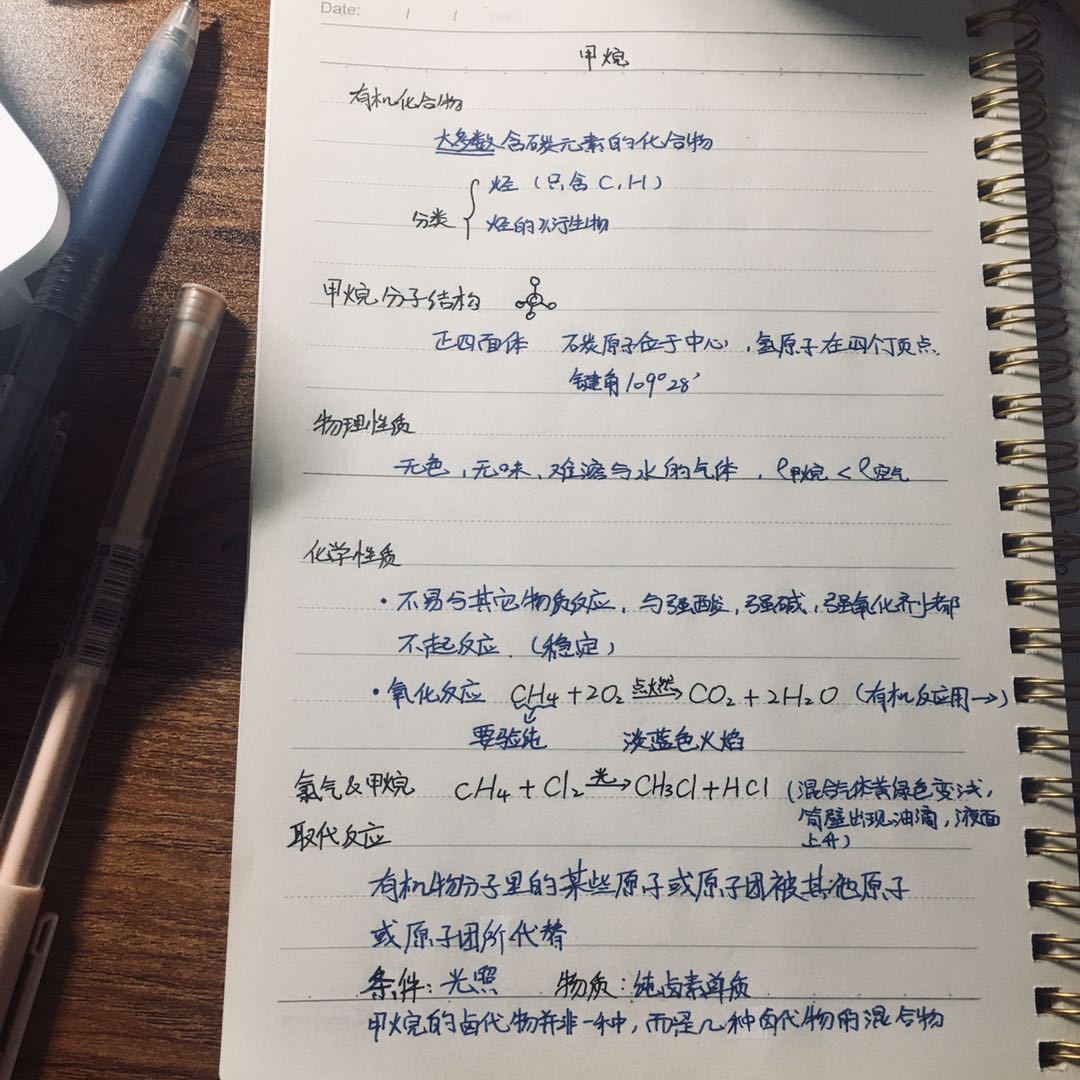 Date: / /
甲烷
有机化合物
大多数含碳元素的化合物
分类 { 烃（只含C,H）
烃的衍生物
甲烷分子结构
正四面体 碳原子位于中心，氢原子在四个顶点.
键角109°28'
物理性质
无色，无味，难溶与水的气体，ρ甲烷<ρ空气
化学性质
·不易与其它物质反应，与强酸，强碱，强氧化剂都
不起反应.（稳定）
·氧化反应 CH₄+2O₂ 点燃→ CO₂+2H₂O（有机反应用→）
要验纯 淡蓝色火焰
氯气&甲烷 CH₄+Cl₂ 光→ CH₃Cl+HCl（混合气体黄绿色变浅，
筒壁出现油滴，液面
上升）
取代反应
有机物分子里的某些原子或原子团被其他原子
或原子团所代替
条件：光照 物质：纯卤素单质
甲烷的卤代物并非一种，而是几种卤代物的混合物